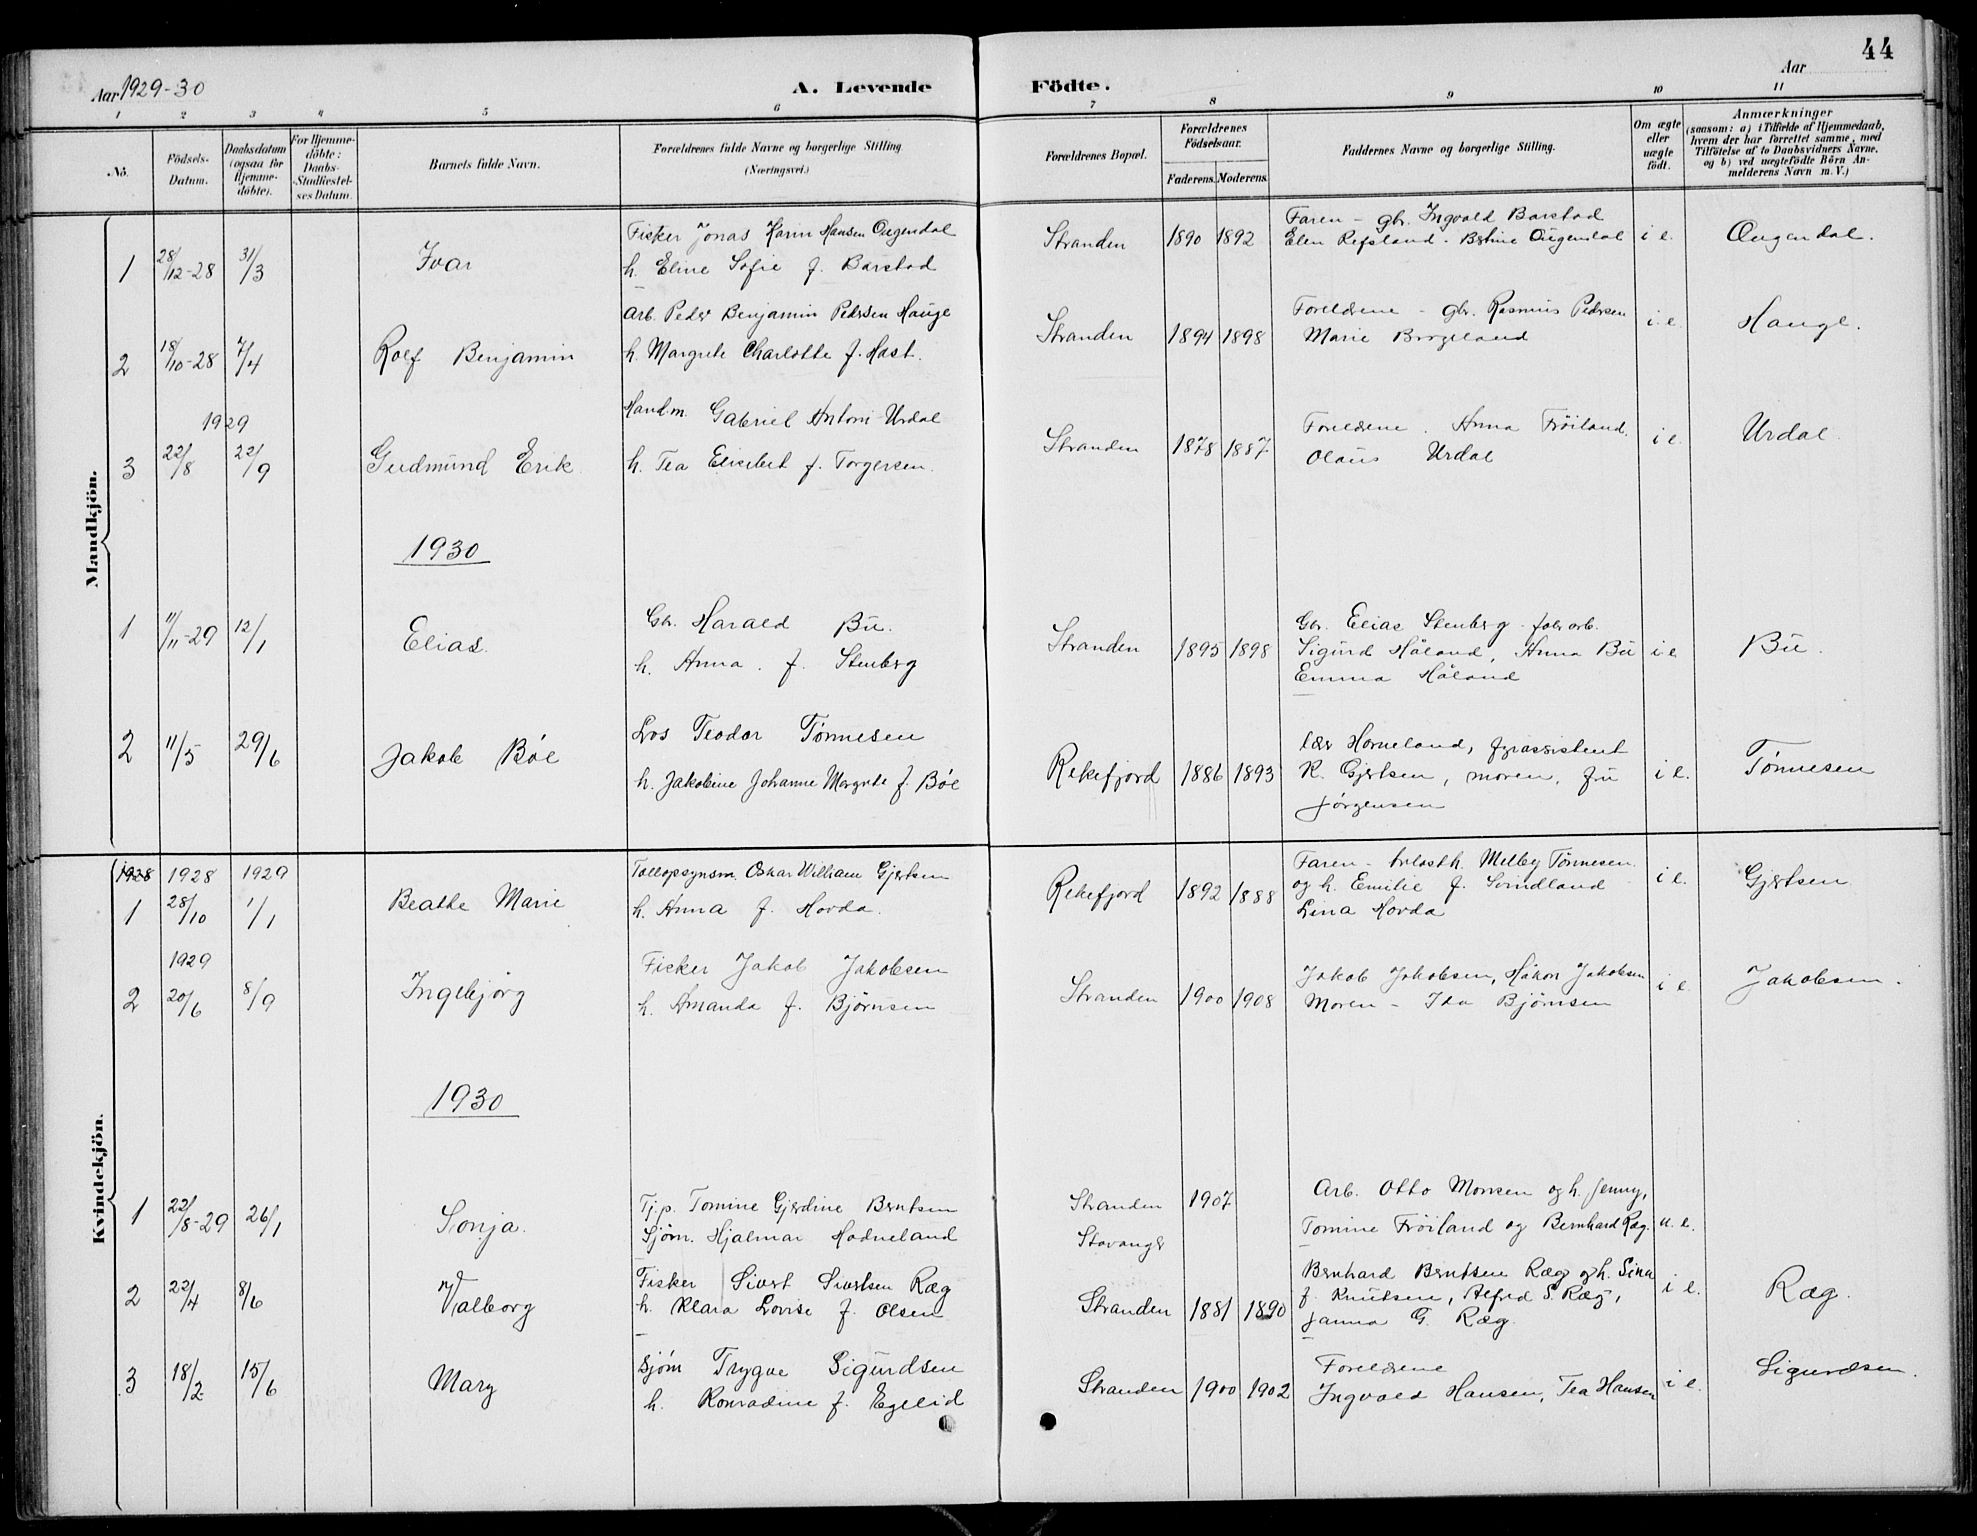 44
Aar 1929-30
A. Levende Födte.
Aar
1 2 3 4 5 6 7 8 9 10 11
No.
Födsels-Datum.
Daabsdatum (ogsaa for Hjemme-döbte).
For Hjemme-döbte: Daabs-Stadfæstel-ses Datum.
Barnets fulde Navn.
Forældrenes fulde Navne og borgerlige Stilling
(Næringsvei.)
Forældrenes Bopæl.
Forældrenes Födselsaar.
Faderens. Moderens.
Faddernes Navne og borgerlige Stilling.
Om ægte eller uægte födt.
Anmærkninger
(saasom: a) i Tilfælde af Hjemmedaab,
hvem der har forrettet samme, med
Tilföielse af to Daabsvidners Navne,
og b) ved uægtefödte Börn An-
melderens Navn m. V.)
Mandkjön.
1 28/12-28 31/3 Ivar
Fisker Jonas Karin Hansen Øugendal
h. Eline Sofie f. Barstad
Stranden 1890 1892
Faren - gbr. Ingvald Barstad
Elen Refsland. Betine Øugendal
i e. Øugendal.
2 18/10-28 7/4 Rolf Benjamin
Arb. Peder Benjamin Pedersen Hauge
h. Margrete Charlotte f. Hast.
Stranden 1894 1898
Foreldrene - gbr. Rasmus Pedersen
Marie Brogeland
i. e. Hauge.
1929
3 22/8 22/9 Gudmund Erik
Handm. Gabriel Antoni Urdal
h. Tea Elisebet f. Torgersen.
Stranden 1878 1887
Foreldrene. Anna Frøiland.
Olaus Urdal
i e. Urdal.
1930
1 11/11-29 12/1 Elias.
Gbr. Harald Bu.
h. Anna. f. Stenberg
Stranden 1895 1898
Gbr. Elias Stenberg - fabr arb.
Sigurd Håland, Anna Bu
Emma Håland
i e Bu.
2 11/5 29/6 Jakob Bøe
Los Teodor Tønnesen
h. Jakobine Johanne Margrete f. Bøe
Rekefjord 1886 1893
lær Horneland, fyrassistent
K. Gjertsen, moren, fru
Jörgensen
i e. Tønnesen
Kvindekjön.
1928 1928 1929
1 28/10 1/1 Beathe Marie
Tollopsynsm. Oskar William Gjertsen
h. Anna f. Hovda.
Rekefjord 1892 1888
Faren - Melby Tønnesen
og h. Emilie f. Svindland
Lina Hovda
i e. Gjertsen
1929
2 20/6 8/9 Ingebjørg
Fisker Jakob Jakobsen
h. Amanda f. Bjørnsen
Stranden 1900 1908
Jakob Jakobsen, Håkon Jakobsen
Moren - Ida Bjørnsen
i e. Jakobsen.
1930
1 22/8-29 26/1 Sonja.
Tj.p. Tomine Gjerdine Berntsen
Sjøm. Hjalmar Hadneland
Stranden 1907
Stavanger
Arb. Otto Monsen og h. Jenny,
Tomine Frøiland og Bernhard Ræg.
u. e.
2 22/4 8/6 Valborg
Fisker Sivert Sivertsen Ræg
h. Klara Lovise f. Olsen
Stranden 1881 1890
Bernhard Berntsen Ræg og h. Sina
f. Knutsen, Alfred S. Ræg,
Janna G. Ræg.
i e. Ræg.
3 18/2 15/6 Mary
Sjøm Trygve Sigurdsen
h. Konradine f. Egelid
Stranden 1900 1902
Foreldrene
Ingvald Hansen, Tea Hansen
i e. Sigurdsen.